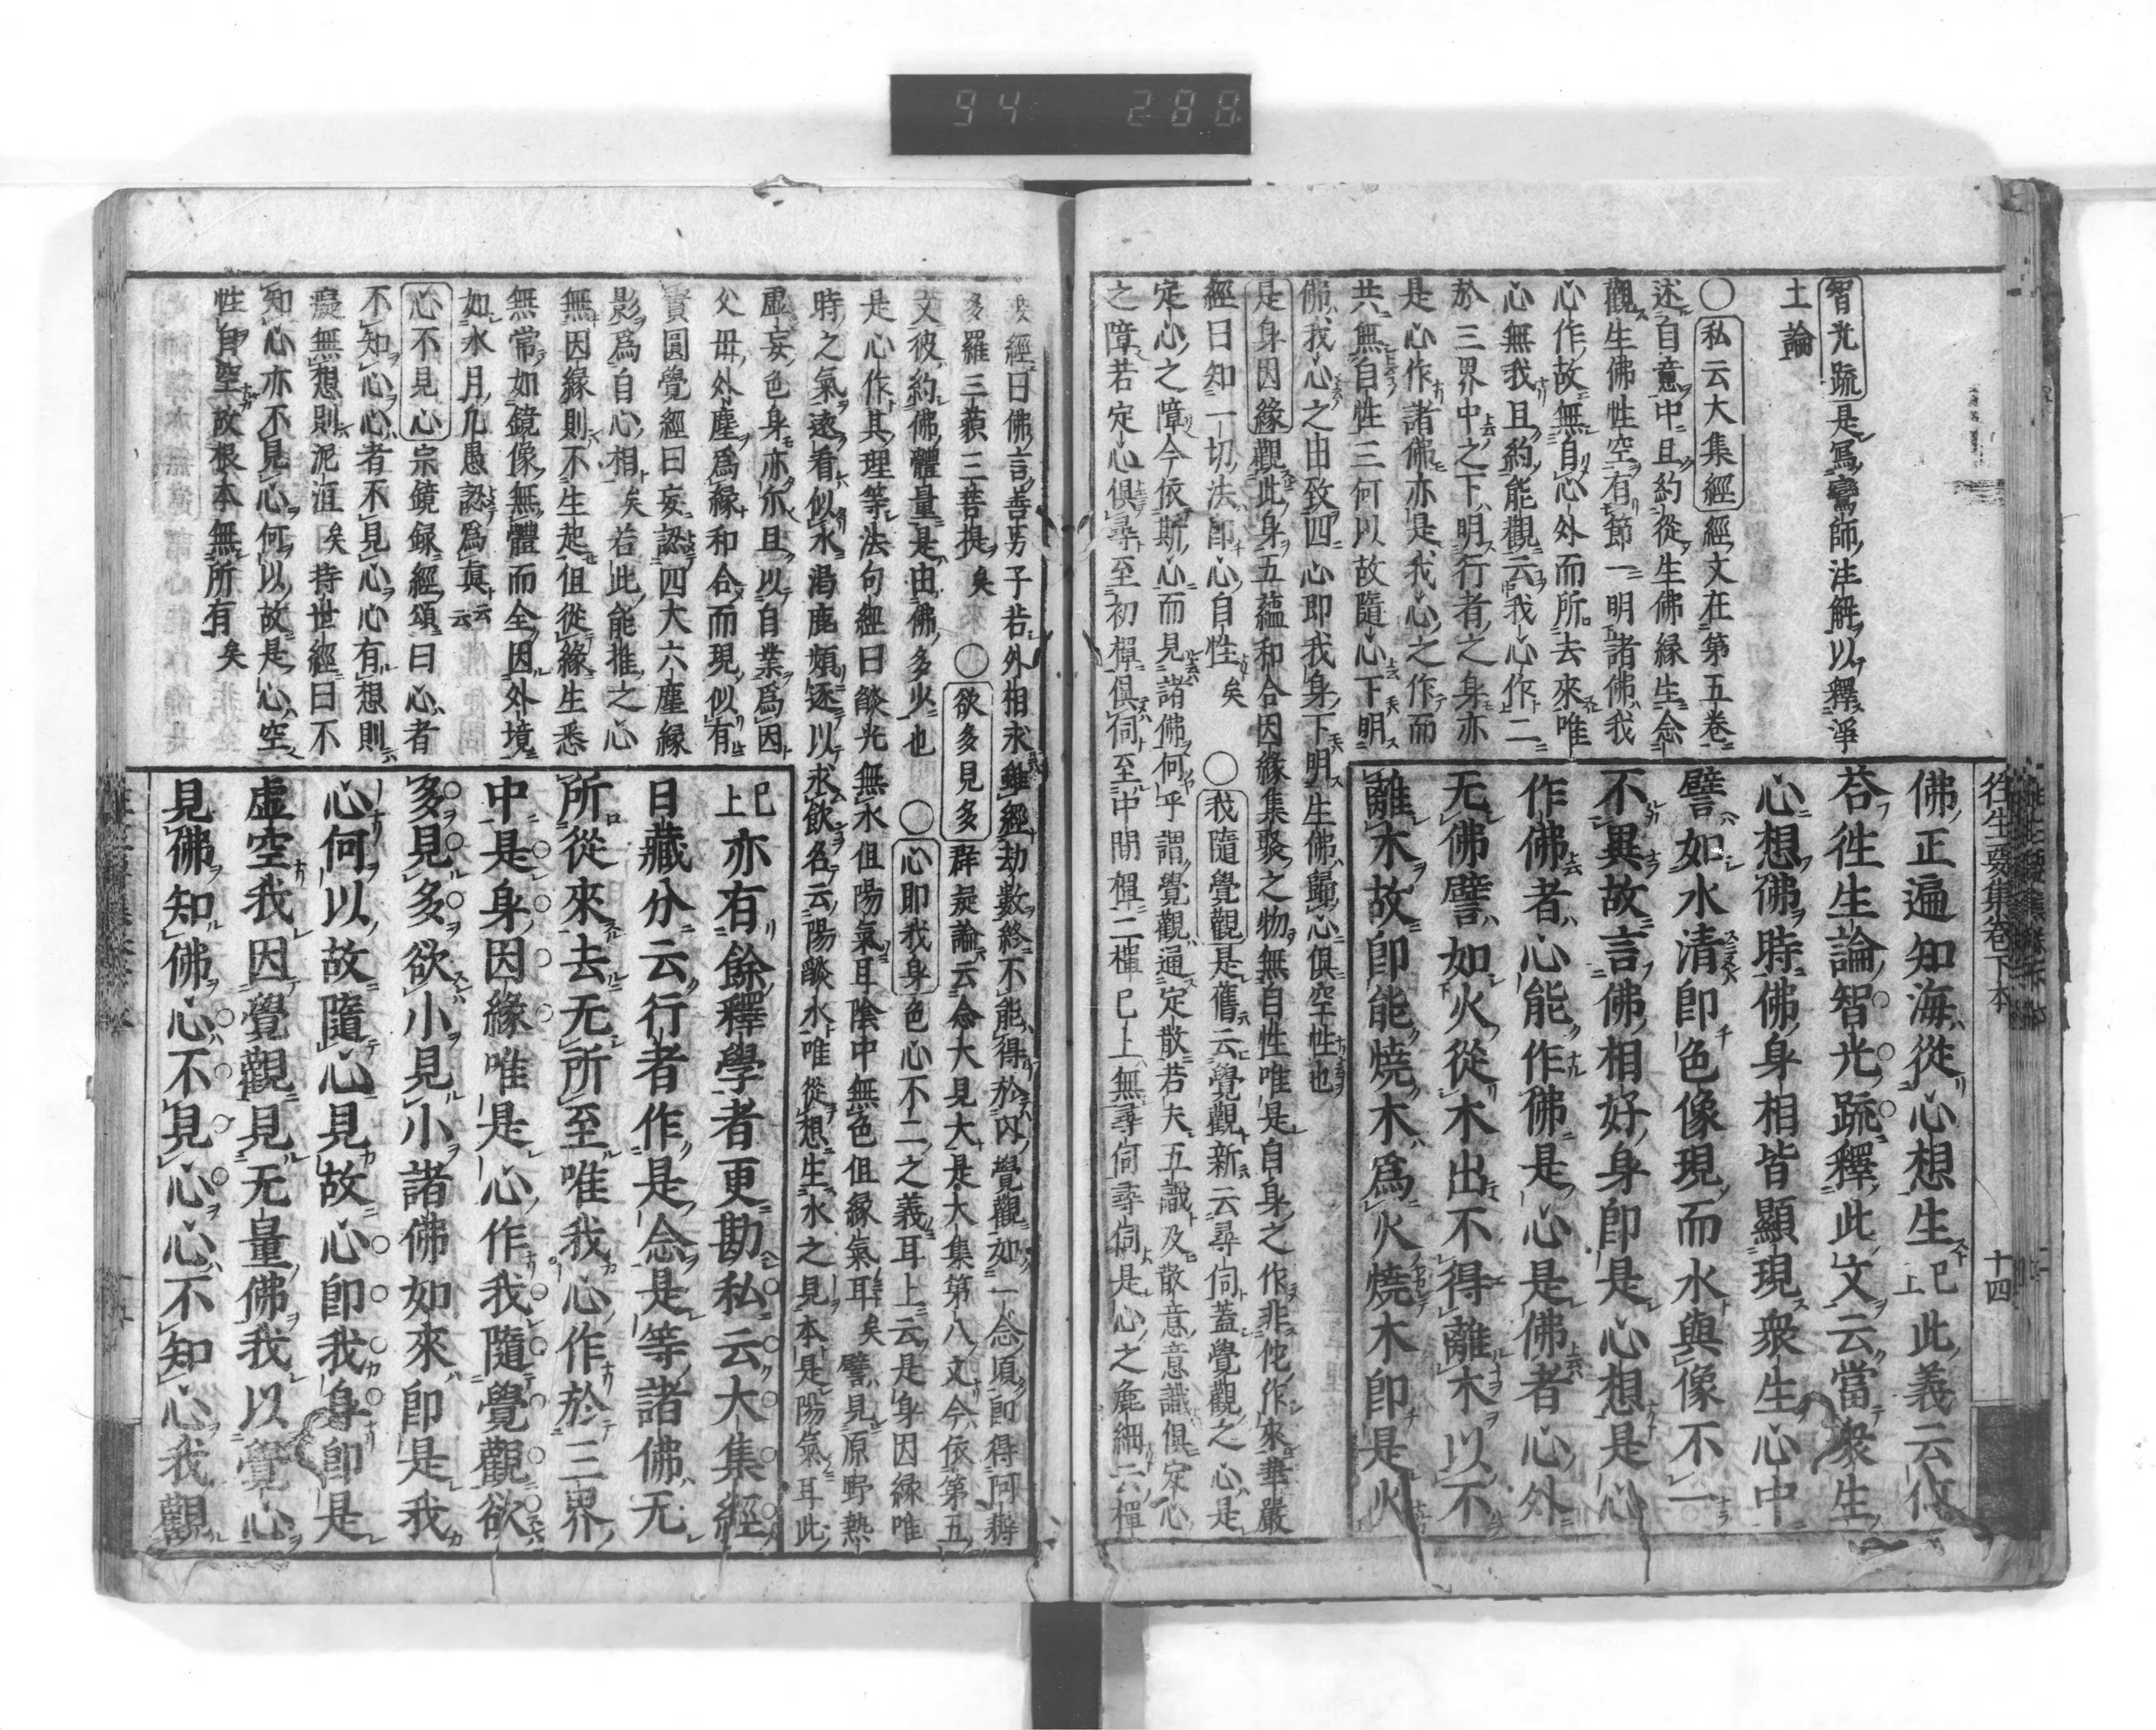 94 288
往生要集卷下本 十四
佛正遍知海從心想生已上此義云何
荅徃生論智光疏釋此文云當衆生
心想佛時佛身相皆顯現衆生心中
譬如水清卽色像現而水與像不一
不異故言佛相好身卽是心想是心
作佛者心能作佛是心是佛者心外
无佛譬如火從木出不得離木以不
離木故卽能燒木爲火燒木卽是火
智光疏是寫鸞師注解以釋淨
土論
○私云大集經經文在第五卷
述自意中且約從生佛緣生念
觀生佛性空有節一明諸佛我
心作故無自心外而所去來唯
心無我且約能觀云我心作二
於三界中之下明行者之身亦
是心作諸佛亦是我心之作而
共無自性三何以故隨心下明
佛我心之由致四心即我身下明生佛歸心俱空性也
是身因緣觀此身五蘊和合因緣集聚之物無自性唯是自身之作非佗作來華嚴
經曰知一切法卽心自性矣 ○我隨覺觀是舊云覺觀新云尋伺蓋覺觀之心是
定心之障今依斯心而見諸佛何乎謂覺觀通定散若夫五識及散意意識俱定心
之障若定心俱尋至初禪俱伺至中間禪二禪已上無尋伺尋伺是心之麁細六禪
經曰佛言善男子若外相求雖經劫數終不能得於内覺觀如一念頃卽得阿耨
多羅三藐三菩提矣 ○欲多見多群疑論云念大見大是大集第八文今依第五
文彼約佛體量是由佛多少也 ○心卽我身色心不二之義耳上云是身因緣唯
是心作其理等法句經曰燄光無水但陽氣耳陰中無色但緣氣耳矣譬見原野熱
時之氣遠看似水渴鹿頻逐以求飲名云陽燄水唯從想生水之見本是陽氣耳此
虛妄色身亦尒且以自業爲因
父母外塵爲緣和合而現似有
實圓覺經曰妄認四大六塵緣
影爲自心相矣若此能推之心
無因緣則不生起但從緣生悉
無常如鏡像無體而全因外境
如水月凡愚認爲眞云云
心不見心宗鏡録經頌曰心者
不知心心者不見心心有想則
癡無想則泥洹矣持世經曰不
知心亦不見心何以故是心空
性自空故根本無所有矣
已上亦有餘釋學者更勘私云大集經
日藏分云行者作是念是等諸佛无
所從來去无所至唯我心作於三界
中是身因緣唯是心作我隨覺觀欲
多見多欲小見小諸佛如來卽是我
心何以故隨心見故心卽我身卽是
虛空我因覺觀見无量佛我以覺心
見佛知佛心不見心心不知心我觀